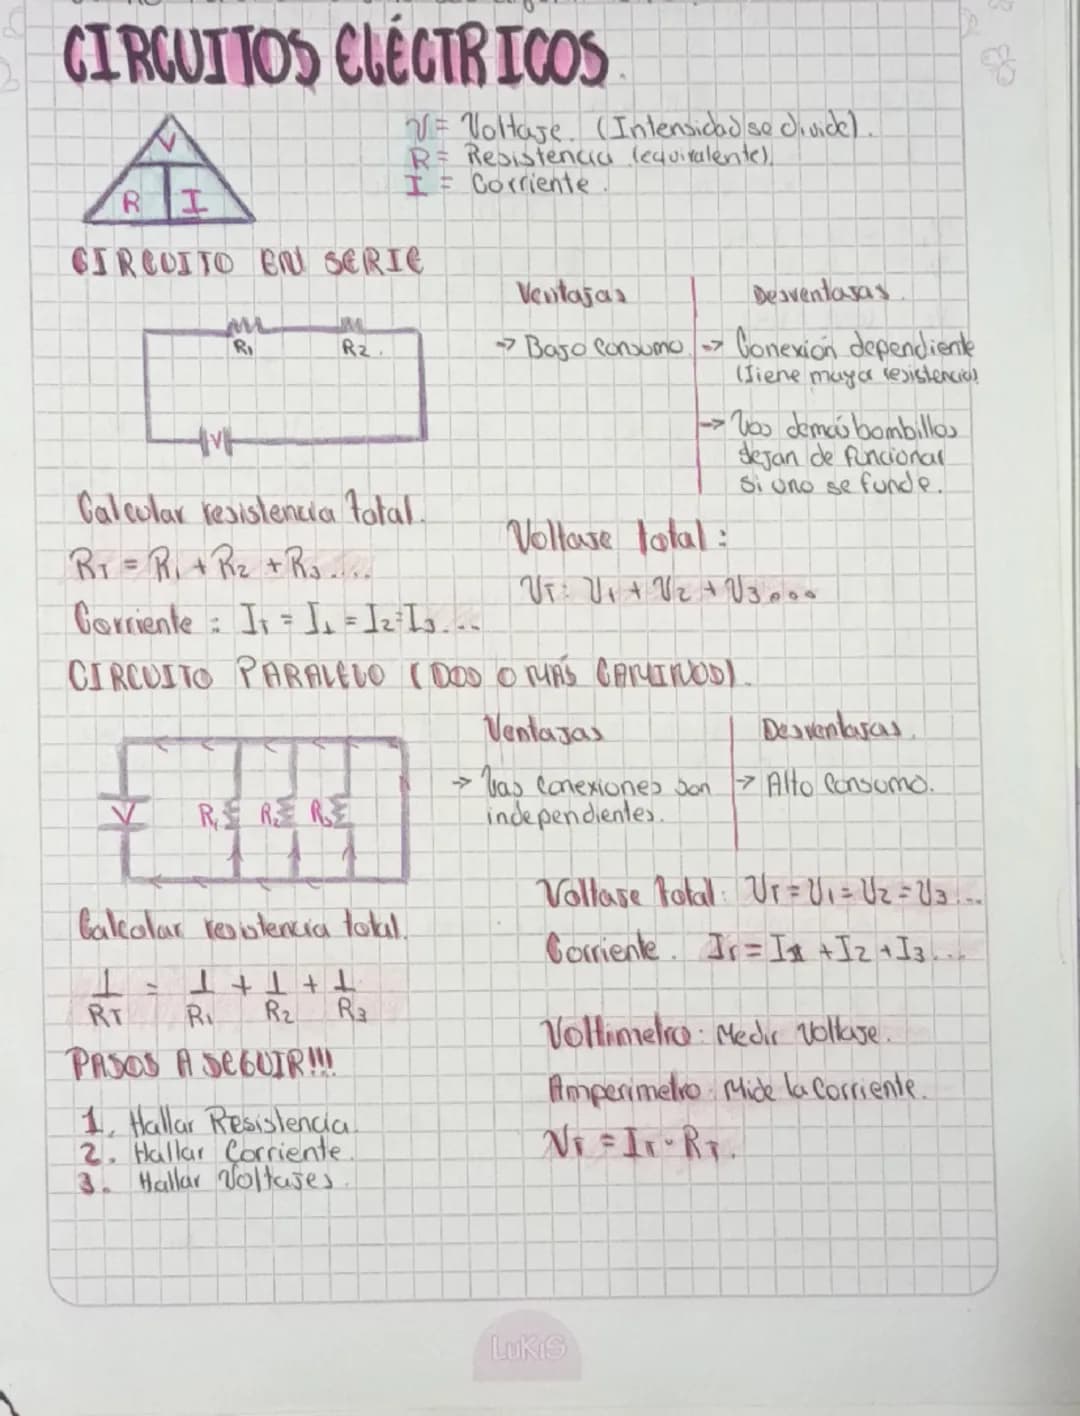 CIRCUITOS ELÉCTRICOS.
V
R I
V = Voltaje. (Intensidad se divide).
R = Resistencia (equivalente).
I = Corriente.
CIRCUITO EN SERIE
R1 R2.
V
Ventajas
Desventajas.
-> Bajo Consumo.
-> Conexión dependiente
(Tiene mayor resistencia)
-> Los demás bombillos
dejan de funcionar
si uno se funde.
Calcular resistencia total.
RT = R1 + R2 + R3....
Corriente: IT = I1 = I2 = I3....
Voltaje total:
VT: V1 + V2 + V3...
CIRCUITO PARALELO (DOS O MÁS CAMINOS).
V R1 R2 R3
Ventajas
Desventajas.
-> Las conexiones son
independientes.
-> Alto Consumo.
Calcular resistencia total.
1/RT = 1/R1 + 1/R2 + 1/R3
Voltaje total: VT = V1 = V2 = V3...
Corriente. IT = I1 + I2 + I3....
PASOS A SEGUIR!!!
1. Hallar Resistencia.
2. Hallar Corriente.
3. Hallar Voltajes.
Voltimetro: Medir Voltaje.
Amperimetro: Mide la Corriente.
VT = IT · RT.
LuKiS